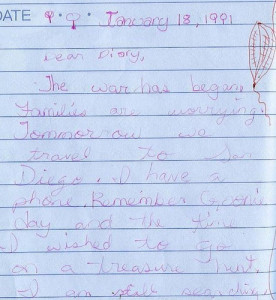 DATE January 18, 1991
Dear Diary,
The war has began
Families are worrying.
Tommorow we
travel to San
Diego. I have a
phone. Remember
day and the time
I wished to go
on a treasure hunt.
I am still searching